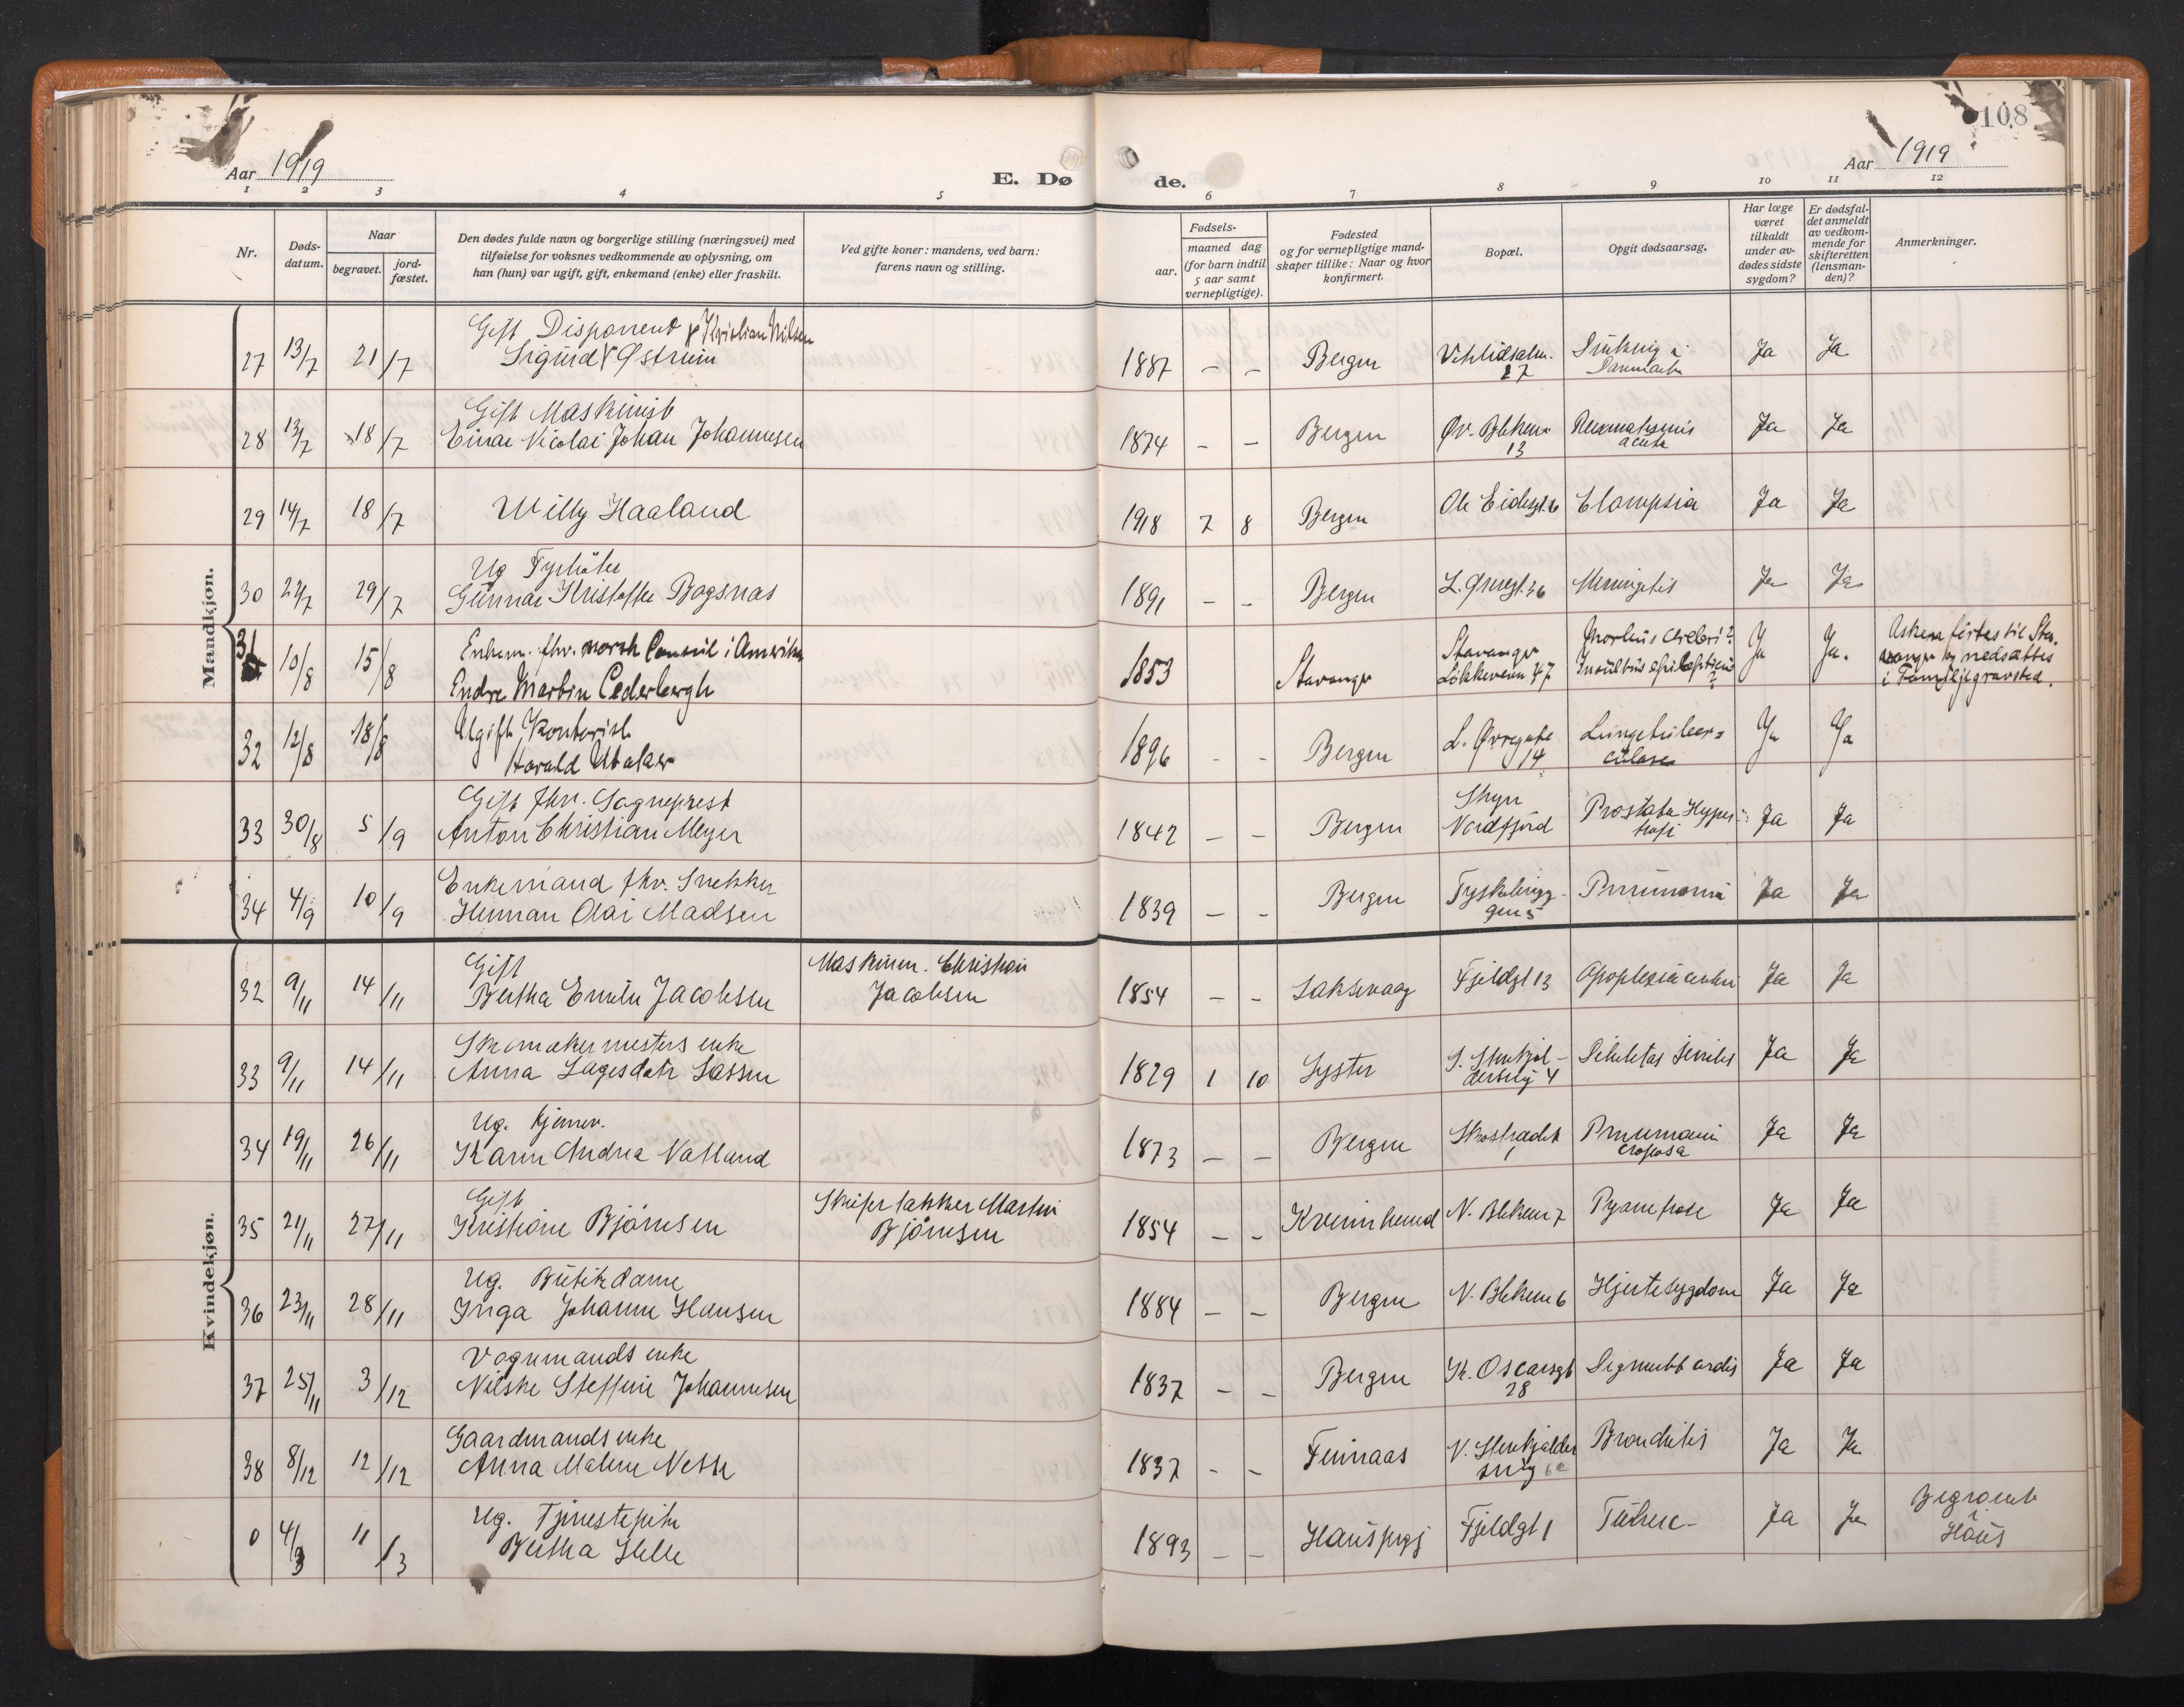 108
Aar 1919
E. Døde.
Aar 1919
1 2 3 4 5 6 7 8 9 10 11 12
Nr.
Døds-datum.
Naar
begravet.
jord-fæstet.
Den dødes fulde navn og borgerlige stilling (næringsvei) med
tilføielse for voksnes vedkommende av oplysning, om
han (hun) var ugift, gift, enkemand (enke) eller fraskilt.
Ved gifte koner: mandens, ved barn:
farens navn og stilling.
Fødsels-
aar.
maaned dag
(for barn indtil
5 aar samt
vernepligtige).
Fødested
og for vernepligtige mand-
skaper tillike: Naar og hvor
konfirmert.
Bopæl.
Opgit dødsaarsag.
Har læge
været
tilkaldt
under av-
dødes sidste
sygdom?
Er dødsfal-
det anmeldt
av vedkom-
mende for
skifteretten
(lensman-
den)?
Anmerkninger.
Mandkjøn.
Gift Disponent Kristian Nilsen
27 13/7 21/7 Sigurd Østrem 1887 – – Bergen 27 Danmark Ja Ja
Gift Maskinist
28 13/7 18/7 Einar Nicolai Johan Johannesen 1874 – – Bergen Øv. Blekev. 13 Reumatismus acuta Ja Ja
29 14/7 18/7 Willy Haaland 1918 7 8 Bergen Eclampsia Ja Ja
Ug Fyrbøter
30 22/7 29/7 Gunnar Kristoffer Bogsnas 1891 – – Bergen L. Øvregt. 36 Meningitis Ja Ja
Enkem. fhv. norsk Consul i Amerika
31 10/8 15/8 Endre Martin Cederbergh 1853 Stavanger Stavanger Løkkeveien 47 Morbus cerebri? Insultus epilepticus? Ja Ja. Asken førtes til Stavanger og nedsættes i Familjegravsted.
Ugift Kontorist
32 12/8 18/8 Harald Utaker 1896 - - Bergen L. Øvregate 14 Lungetuberculose Ja Ja
Gift fhv. Sogneprest
33 30/8 5/9 Anton Christian Meyer 1842 – – Bergen Stryn Nordfjord Prostata Hypertrofi Ja Ja
Enkemand fhv. Snekker
34 4/9 10/9 Herman Olai Madsen 1839 – - Bergen Tyskebryggen 5 Pneumonia Ja Ja
Kvindekjøn.
Gift Maskinm. Christian
32 9/11 14/11 Bertha Emilie Jacobsen Jacobsen 1854 – - Laksevaag Fjeldgt 13 Apoplexia cerebri Ja Ja
Skomakermesters enke
33 9/11 14/11 Anna Lagesdatr Lassen 1829 1 10 Lyster 4 Debilitas senilis Ja Ja
Ug. Kjernev.
34 19/11 26/11 Karen Andrea Natland 1873 – – Bergen Skostrædet 1 Pneumoni croposa Ja Ja
Gift Martin
35 21/11 27/11 Kristiane Bjørnsen Bjørnsen 1854 – - N. Blekev 7 Pyonefrose Ja Ja
Ug. Butikdame
36 23/11 28/11 Inga Johanne Hansen 1884 – – Bergen N. Blekev 6 Hjertesygdom Ja Ja
Vognmands enke
37 25/11 3/12 Nilske Steffine Johannesen 1837 – – Bergen K. Oscarsgt 28 Ja Ja
Gaardmands enke
38 8/12 12/12 Anna Malene Nesse 1837 - – Finnaas N. Stenkjeldersmug Bronchitis Ja Ja
Ug. Tjenestepike
0 4/3 11/3 Bertha Helle 1893 – – Haus prgj Fjeldgt 1 Tuberc- Ja Ja Begravet i Haus